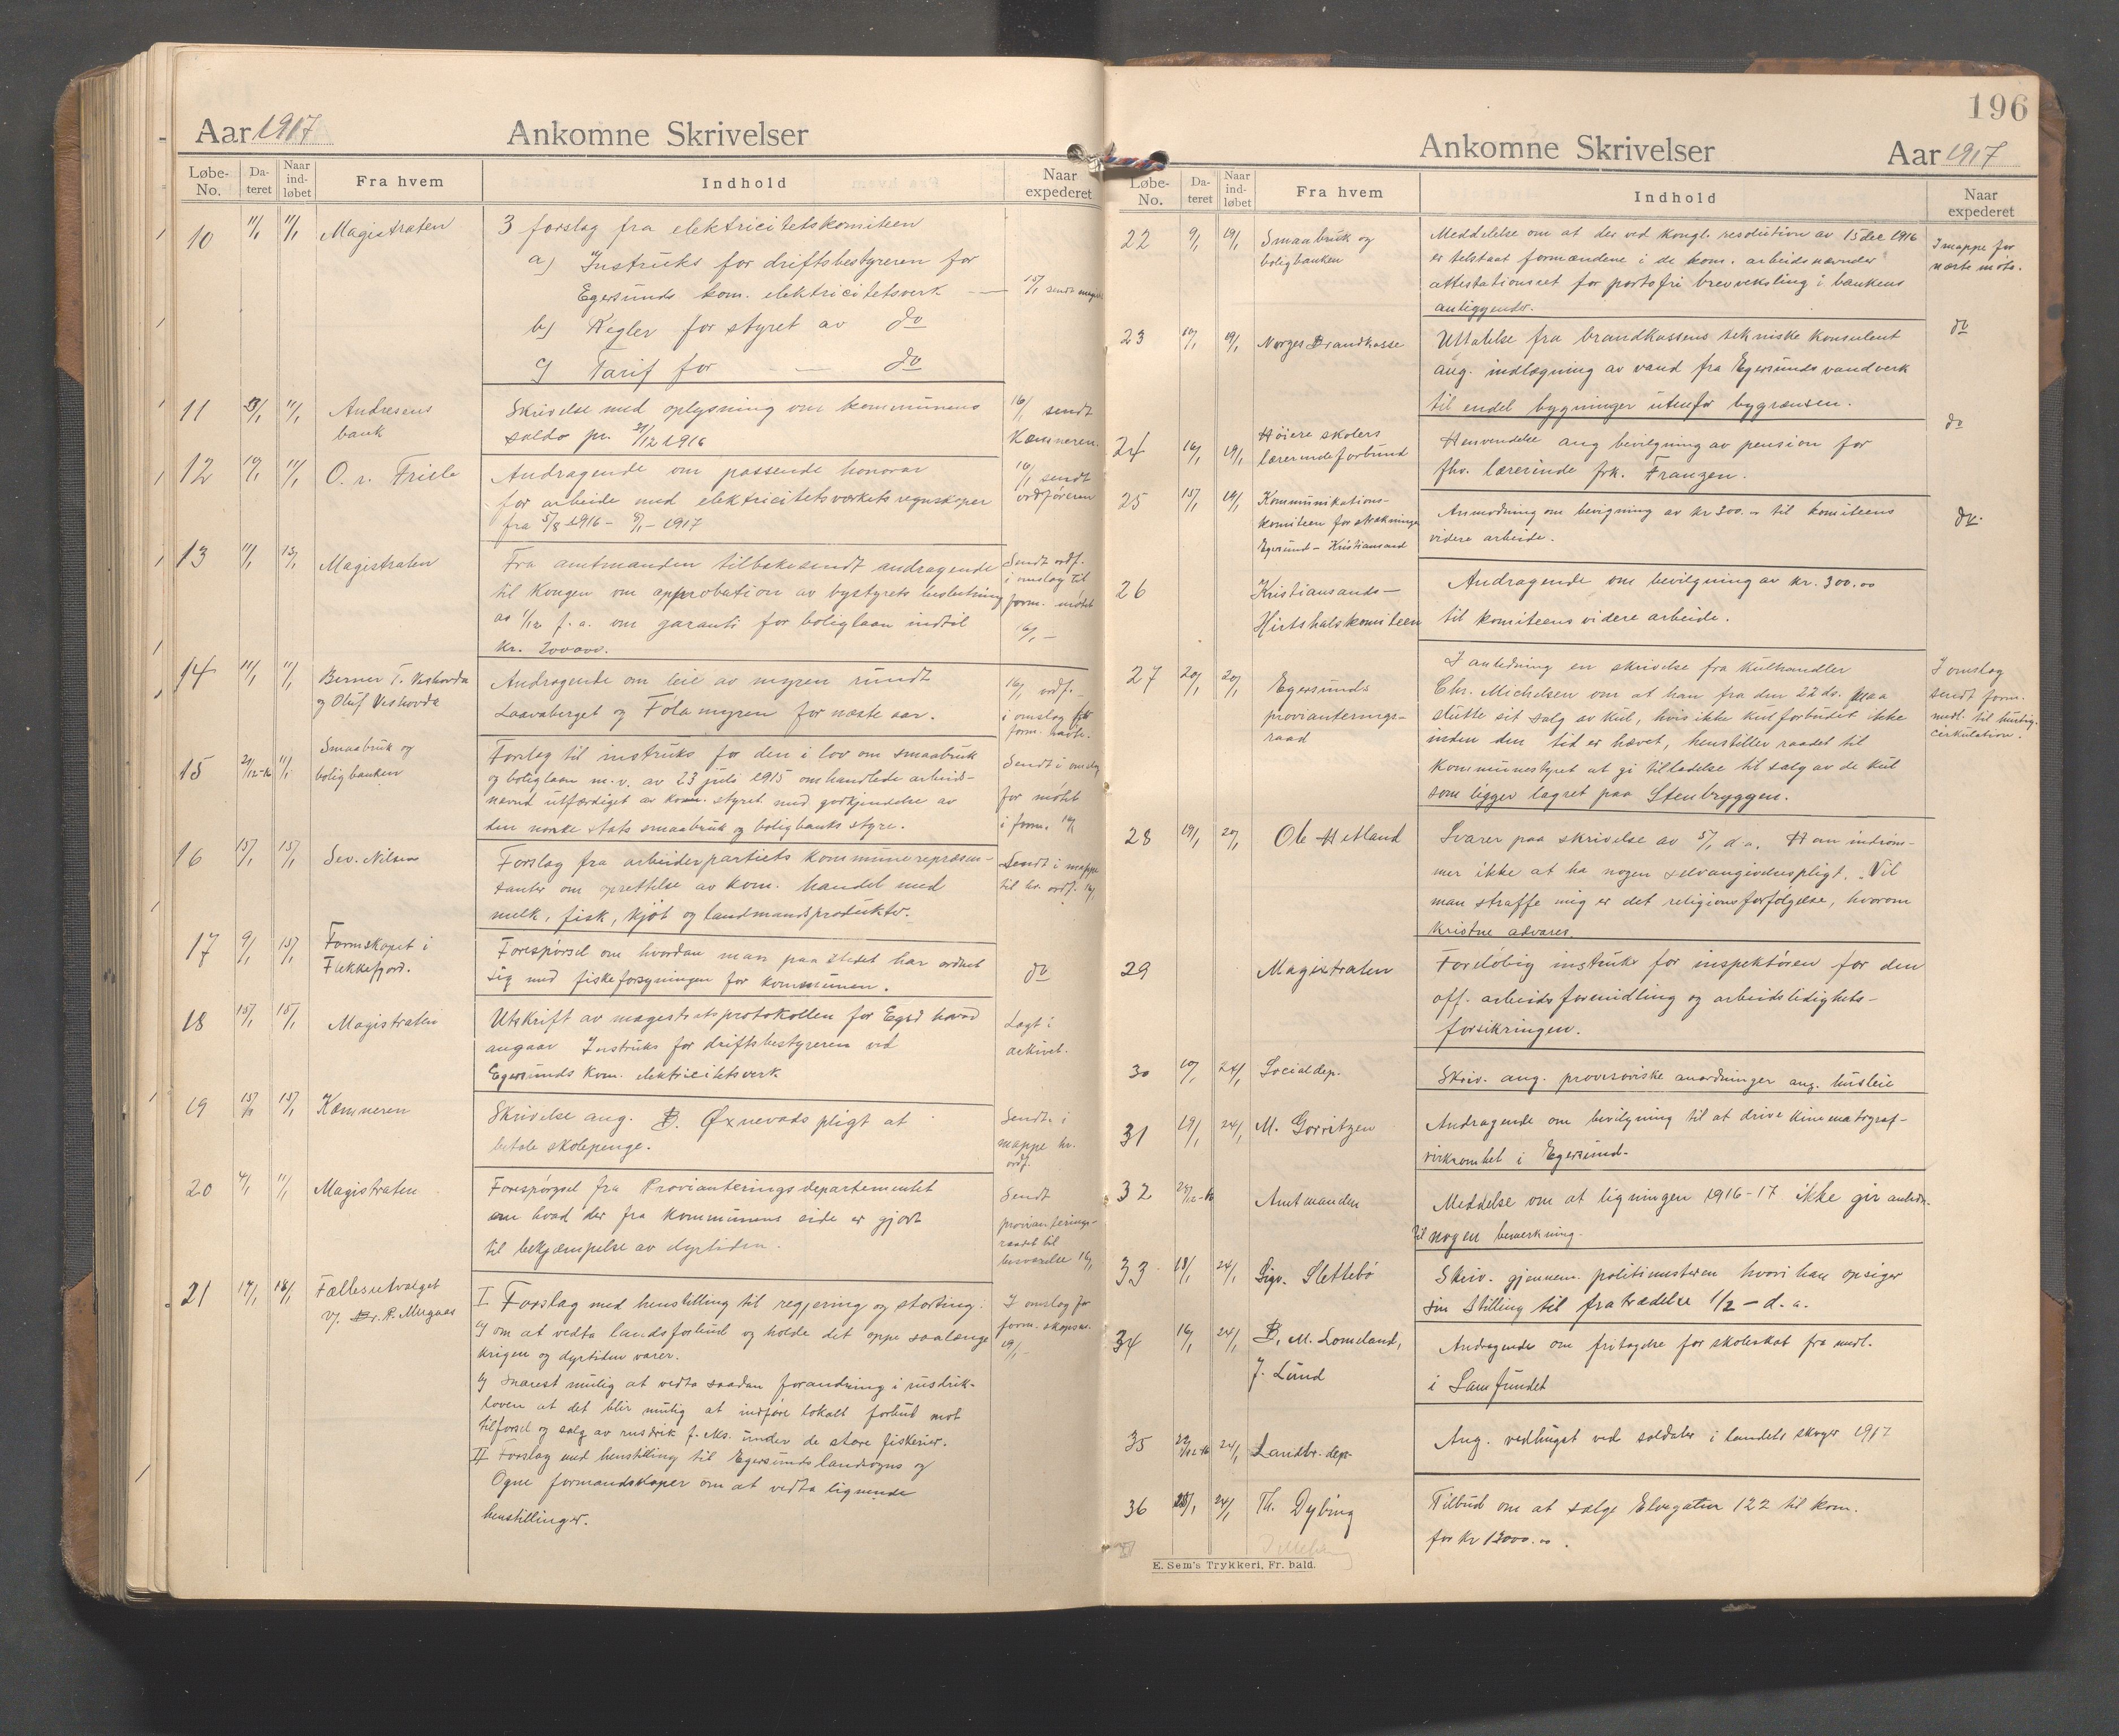 Aar 1917 Ankomne Skrivelser
Løbe-No. Da-teret Naar ind-løbet Fra hvem Indhold Naar expederet
10 11/1 11/1 Magistraten 3 forslag fra elektricitetskomiteen
a) Instruks for driftsbestyreren for
Egersunds kom. elektricitetsverk — 15/1 sendt
b) Regler for styret av do
c) Tarif for — do
11 11/1 Andresens Skrivelse med oplysning om kommunens 16/1 sendt
bank saldo pr. 31/12 1916 Kæmneren.
12 10/1 11/1 O. v. Friele Andragende om passende honorar 16/1 sendt
for arbeide med elektricitetsværkets regnskaper ordføreren
fra 5/8 1916 - 9/1 - 1917
13 11/1 13/1 Magistraten Fra amtmanden tilbakesendt andragende Sendt ordf.
til Kongen om approbation av bystyrets beslutning i omslag til
av 1/12 f.a. om garanti for boliglaan indtil form. møtet
kr. 200000. 16/1 -
14 11/1 11/1 Berner T. Veshovda Andragende om leie av myren rundt 16/1 ordf. -
og Oluf Veshovda Laavaberget og Fola myren for næste aar. i omslag
15 21/12-16 11/1 Smaabruk og Forslag til instruks for den i lov om smaabruk Sendt i omslag
boligbanken og boliglaan m.v. av 23 juli 1915 omhandlede arbeids-
nævnd utfærdiget av kom. styret med godkjendelse av for møtet
den norske stats smaabruk og boligbanks styre. i form. 16/1
16 15/1 15/1 Sev. Nilsen Forslag fra arbeiderpartiets kommunerepræsen- Sendt i mappe
tanter om oprettelse av kom. handel med til hr. ordf. 16/1
melk, fisk, kjøt og landmandsprodukter.
17 9/1 15/1 Formskapet i Forespørsel om hvordan man paa stedet har ordnet do
Flekkefjord. sig med fiskeforsyningen for kommunen.
18 15/1 15/1 Magistraten Utskrift av magistratsprotokollen for Egsd hvad Lagt i
angaar Instruks for driftsbestyreren ved arkivet.
Egersunds kom. elektricitetsverk
19 15/1 15/1 Kæmneren Skrivelse ang. B. Øxnevads pligt at Sendt i
betale skolepenge. mappe hr. ordf.
20 4/1 11/1 Magistraten Forespørgsel fra Provianteringsdepartementet Sendt
om hvad der fra kommunens side er gjort provianterings-
til bekjæmpelse av dyrtiden. raadet til besvarelse 16/1
21 17/1 18/1 Fællesutvalget I Forslag med henstilling til regjering og storting: I omslag for
v/ Dr. P. Mugaas a) om at vedta landsforbud og holde det oppe saalænge form.skapsm.
krigen og dyrtiden varer. 19/1 -
b) snarest mulig at vedta saadan forandring i rusdrik-
loven at det blir mulig at indføre lokalt forbud mot
tilførsel og salg av rusdrik f. eks. under de store fiskerier.
II Forslag med henstilling til Egersunds landsogns og
Ogne formandskaper om at vedta lignende
henstillinger.
196
Ankomne Skrivelser Aar 1917
Løbe-No. Da-teret Naar ind-løbet Fra hvem Indhold Naar expederet
22 9/1 19/1 Smaabruk og Meddelelse om at der ved kongl. resolution av 15 dec 1916 I mappe for
boligbanken er tilstaat formændene i de kom. arbeidsnævnder næste møte.
attestationsret for portofri brevveksling i bankens
anliggender.
23 17/1 19/1 Norges Brandkasse Uttalelse fra brandkassens tekniske konsulent do
ang. indlægning av vand fra Egersunds vandverk
til endel bygninger utenfor bygrænsen.
24 16/1 19/1 Høiere skolers Henvendelse ang bevilgning av pension for do
lærerindeforbund fhv. lærerinde frk. Franzen.
25 15/1 19/1 Kommunikations- Anmodning om bevigning av kr 300.00 til komiteens do.
komiteen for strækningen videre arbeide.
Egersund - Kristiansand
26 Kristiansands - Andragende om bevilgning av kr. 300.00
Hirtshalskomiteen til komiteens videre arbeide.
27 20/1 20/1 Egersunds I anledning en skrivelse fra kulhandler I omslag
provianterings- Chr. Michelsen om at han fra den 22 ds. maa sendt form.
raad slutte sit salg av kul, hvis ikke kulforbudet ikke medl. til hurtig.
inden den tid er hævet, henstiller raadet til cirkulation.
kommunestyret at gi tilladelse til salg av de kul
som ligger lagret paa Stenbryggen.
28 19/1 20/1 Ole Hetland Svarer paa skrivelse av 5/1 d.a. Han indrøm-
mer ikke at ha nogen selvangivelsespligt. Vil
man straffe mig er det religionsforfølgelse, hvorom
kristne advares.
29 Magistraten Foreløbig instruks for inspektøren for den
off. arbeidsformidling og arbeidslidighets-
forsikringen.
30 10/1 24/1 Socialdep. Skriv. ang. provisoriske anordninger ang. husleie
31 19/1 24/1 M. Gorritzen Andragende om bevilgning til at drive kinematograf-
virksomhet i Egersund.
32 Amtmanden Meddelse om at ligningen 1916-17 ikke gir anledn.
til nogen bemerkning.
33 18/1 24/1 Sigv. Slettebø Skriv. gjennem. politimesteren hvori han opsiger
sin Stilling til fratrædelse 1/2 - d.a.
34 16/1 24/1 B. M. Lomeland, Andragende om fritagelse for skoleskat fra medl.
J. Lund i Samfundet
35 24/1 Landbr. dep. Ang. vedhugst ved soldater i landets skoger 1917
36 24/1 Th. Dybing Tilbud om at sælge Elvegaten 122 til kom.
for kr 12000.00.
E. Sem's Trykkeri, Fr. hald.